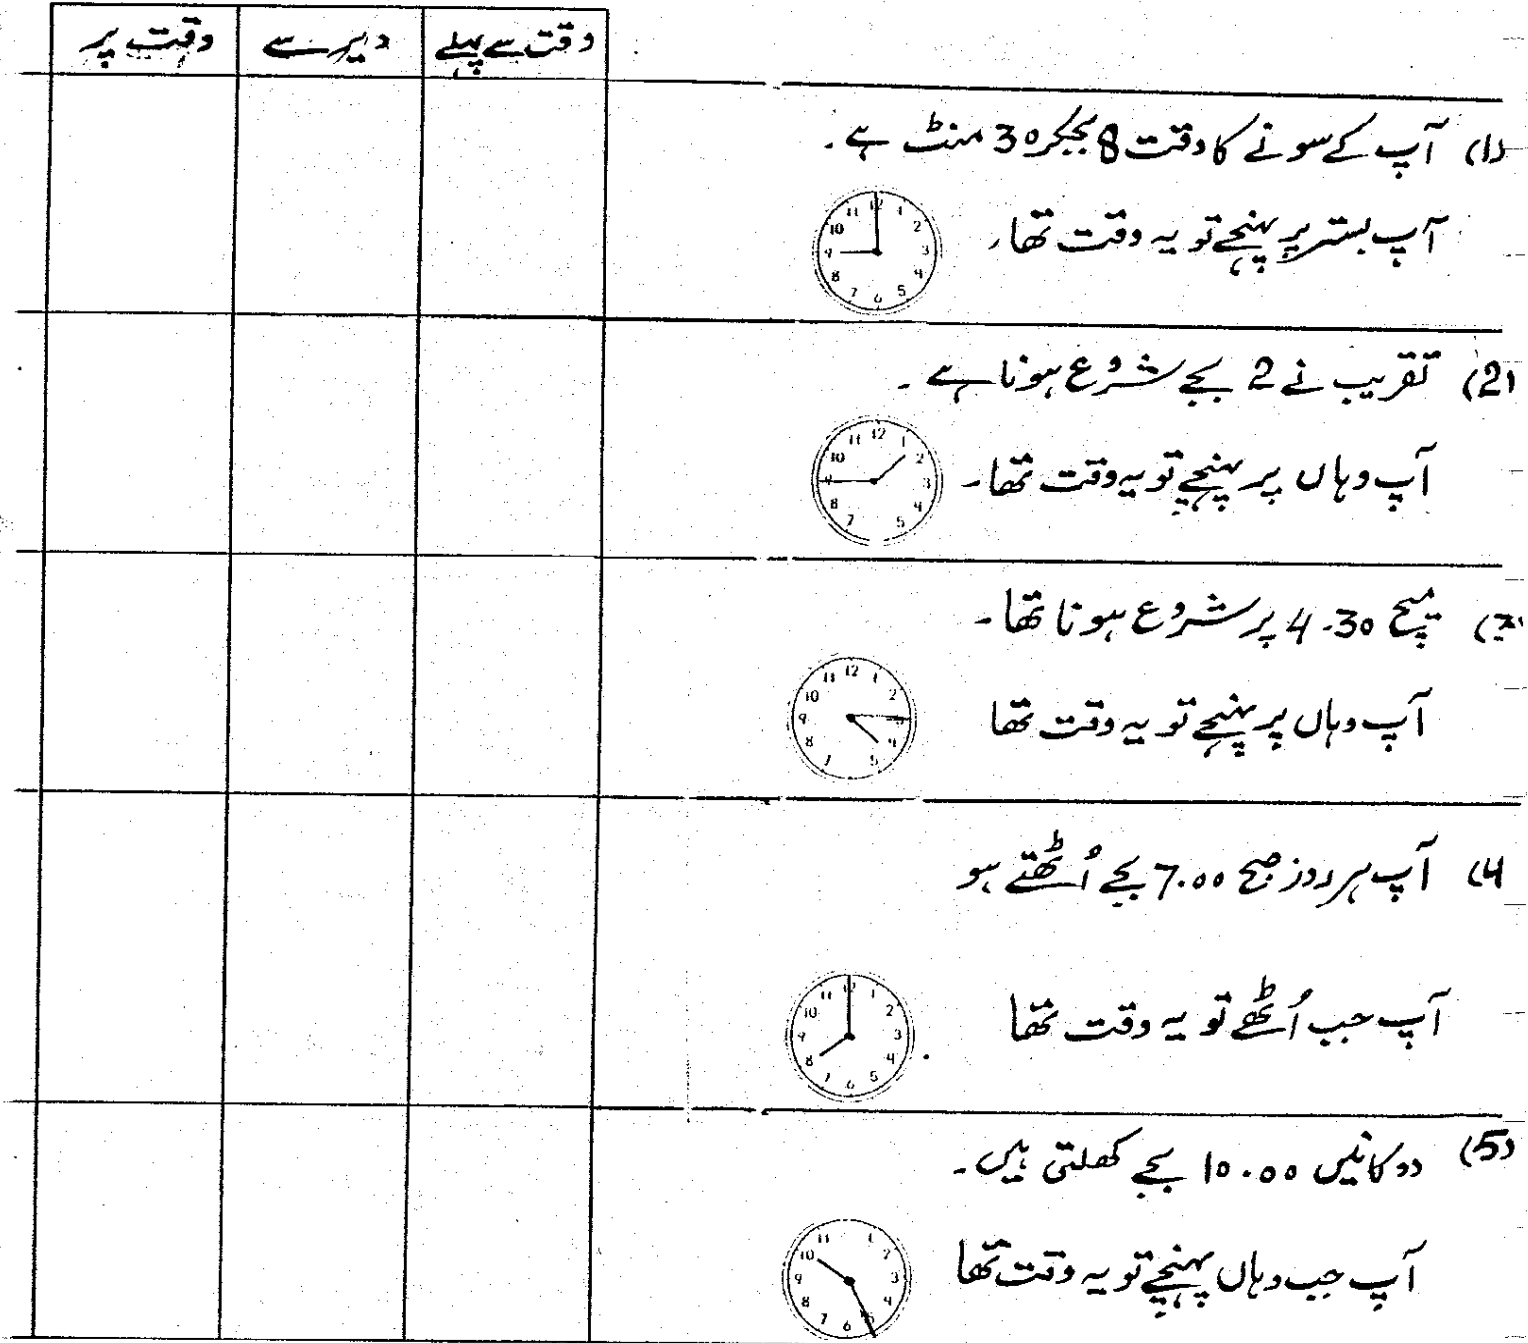 وقت سے پہلے دیر سے وقت پر
(1) آپ کے سونے کا وقت 8 بجکر 30 منٹ ہے۔
آپ بستر پر پہنچے تو یہ وقت تھا۔
12 1 2 3 4 5 6 7 8 9 10 11
(2) تقریب نے 2 بجے شروع ہونا ہے۔
آپ وہاں پر پہنچے تو یہ وقت تھا۔
12 1 2 3 4 5 7 8 9 10 11
(3) میچ 4.30 پر شروع ہونا تھا۔
آپ وہاں پر پہنچے تو یہ وقت تھا
12 1 2 3 4 5 7 8 9 10 11
(4 آپ ہر روز صبح 7.00 بجے اُٹھتے ہو
آپ جب اُٹھے تو یہ وقت تھا
12 1 2 3 4 5 6 7 8 9 10 11
(5) دوکانیں 10.00 بجے کھلتی ہیں۔
آپ جب وہاں پہنچے تو یہ وقت تھا
1 2 3 4 5 6 7 8 9 10 11